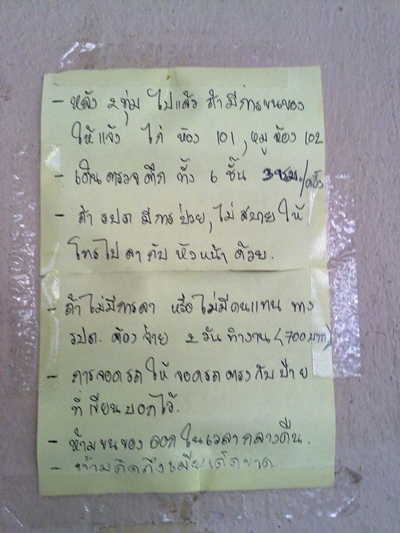 - หลัง ๒ทุ่ม ไปแล้ว ถ้ามีการขนของ
ให้แจ้ง ไก่ ห้อง 101, หมู ห้อง 102
- เดินตรวจตึก ทั้ง 6 ชั้น 3ชม./ครั้ง
- ถ้า รปภ มีการป่วย, ไม่สบาย ให้
โทรไปลากับหัวหน้าด้วย.
- ถ้าไม่มีการลา หรือไม่มีคนแทน ทาง
รปภ. ต้องจ่าย ๒ วันทำงาน (700บาท)
- การจอดรถให้จอดรถตรงกับป้าย
ที่เขียนบอกไว้.
- ห้ามขนของออกในเวลากลางคืน.
- ห้ามคิดถึงเมียเด็ดขาด